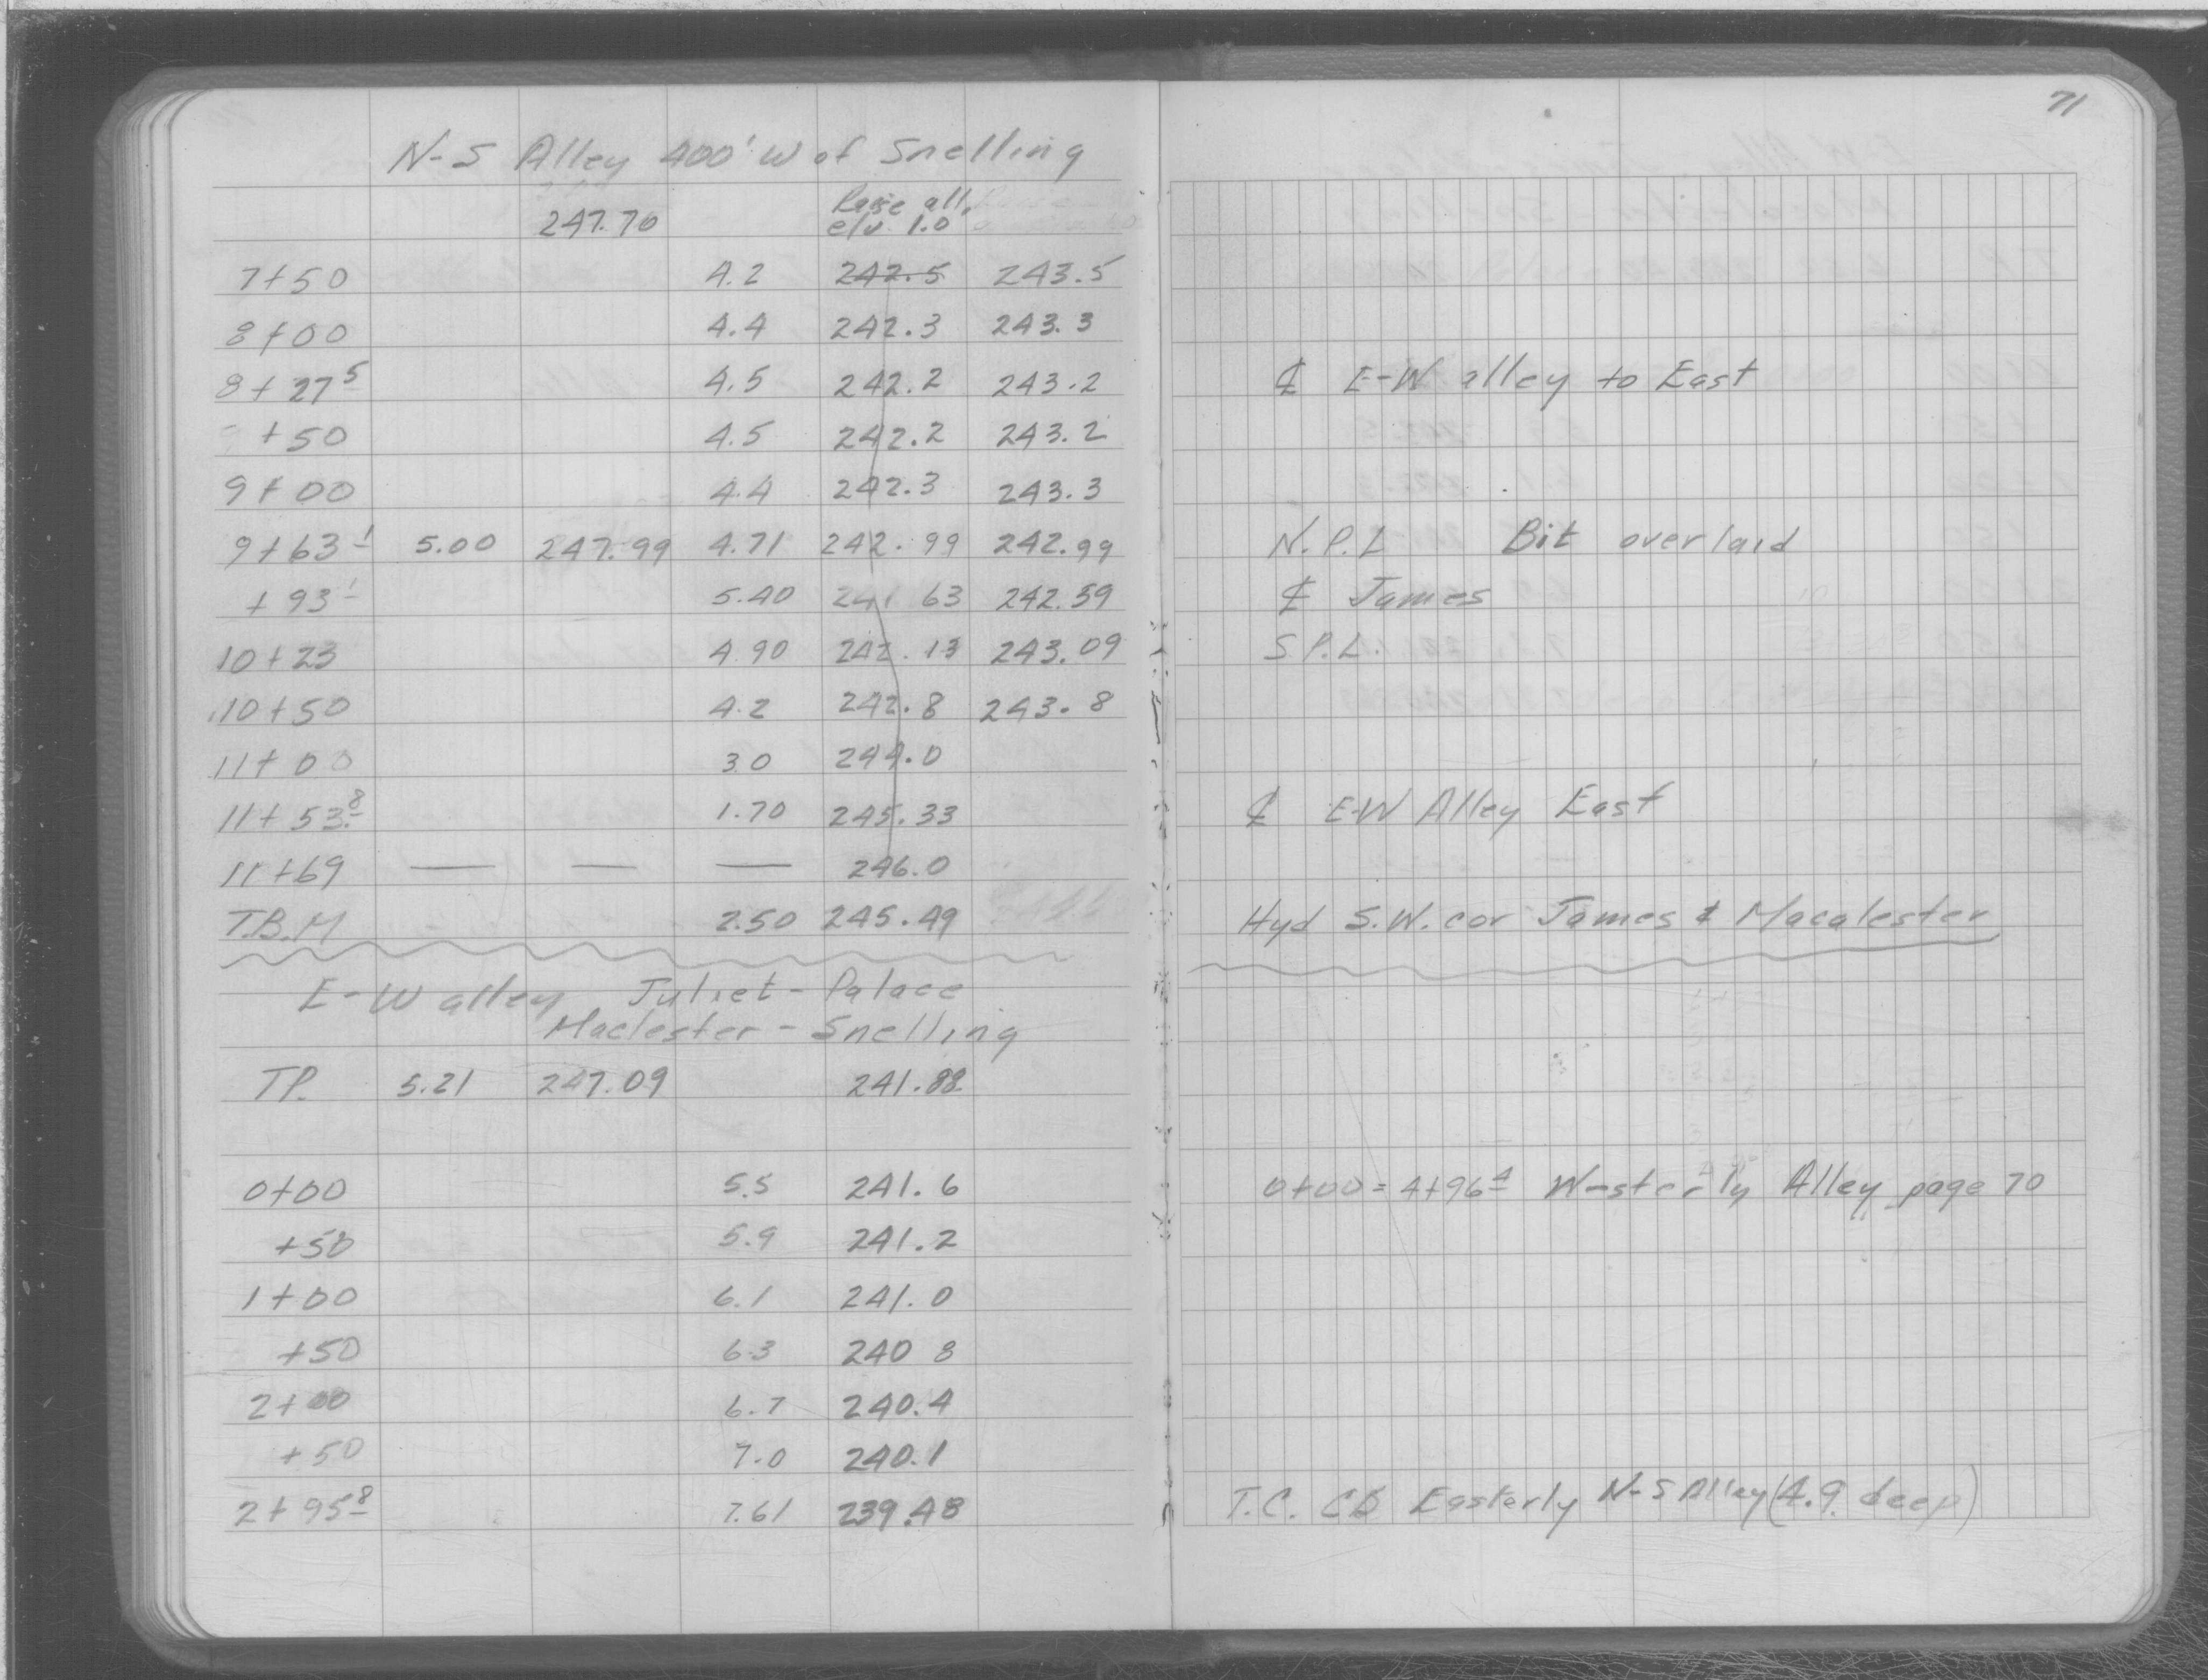 71
N-S Alley 400' W of Snelling
Raise all
247.70 elv. 1.0
7+50 4.2 242.5 243.5
8+00 4.4 242.3 243.3
8+27 5 4.5 242.2 243.2 ℄ E-W alley to East
+50 4.5 242.2 243.2
9+00 4.4 242.3 243.3
9+63 1 5.00 247.99 4.71 242.99 242.99 N.P.L Bit overlaid
+93 1 5.40 241 63 242.59 ℄ James
10+23 4.90 242.13 243.09 S P.L.
10+50 4.2 242.8 243.8
11+00 3.0 244.0
11+53 8 1.70 245.33 ℄ E-W Alley East
11+69 — — — 246.0
T.B.M 2.50 245.49 Hyd S.W. cor James & Macalester
E-W alley Juliet-Palace
Maclester-Snelling
TP. 5.21 247.09 241.88
0+00 5.5 241.6 0+00 = 4+96 4 Westerly Alley page 70
+50 5.9 241.2
1+00 6.1 241.0
+50 6.3 240 8
2+00 6.7 240.4
+50 7.0 240.1
2+95 8 7.61 239.48 T.C. CB Easterly N-S Alley (4.9 deep)